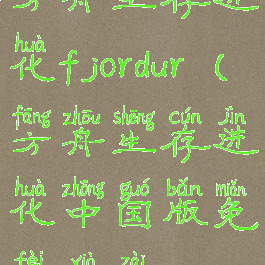 方舟生存进
huà
化fjordur（
fāng zhōu shēng cún jìn
方舟生存进
huà zhōng guó bǎn miǎn
化中国版免
fèi xià zài